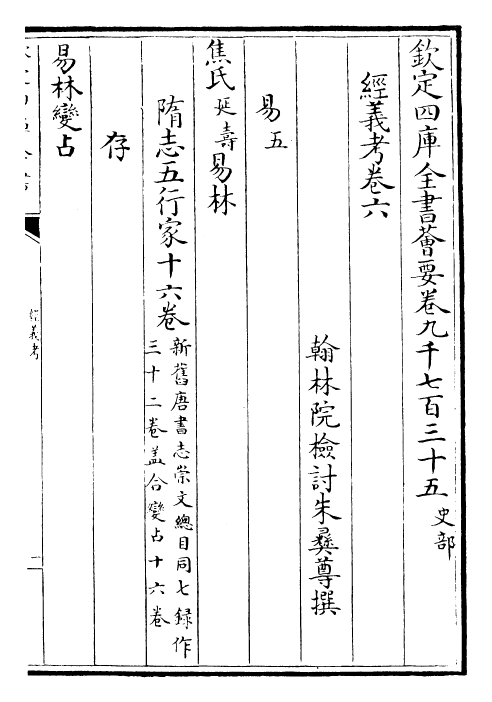 欽定四庫全書薈要卷九千七百三十五 史部
經義考卷六
翰林院檢討朱彝尊撰
易五
焦氏延壽易林
隋志五行家十六卷 新舊唐書志崇文總目同七録作
三十二卷盖合變占十六卷
存
易林變占
經義考